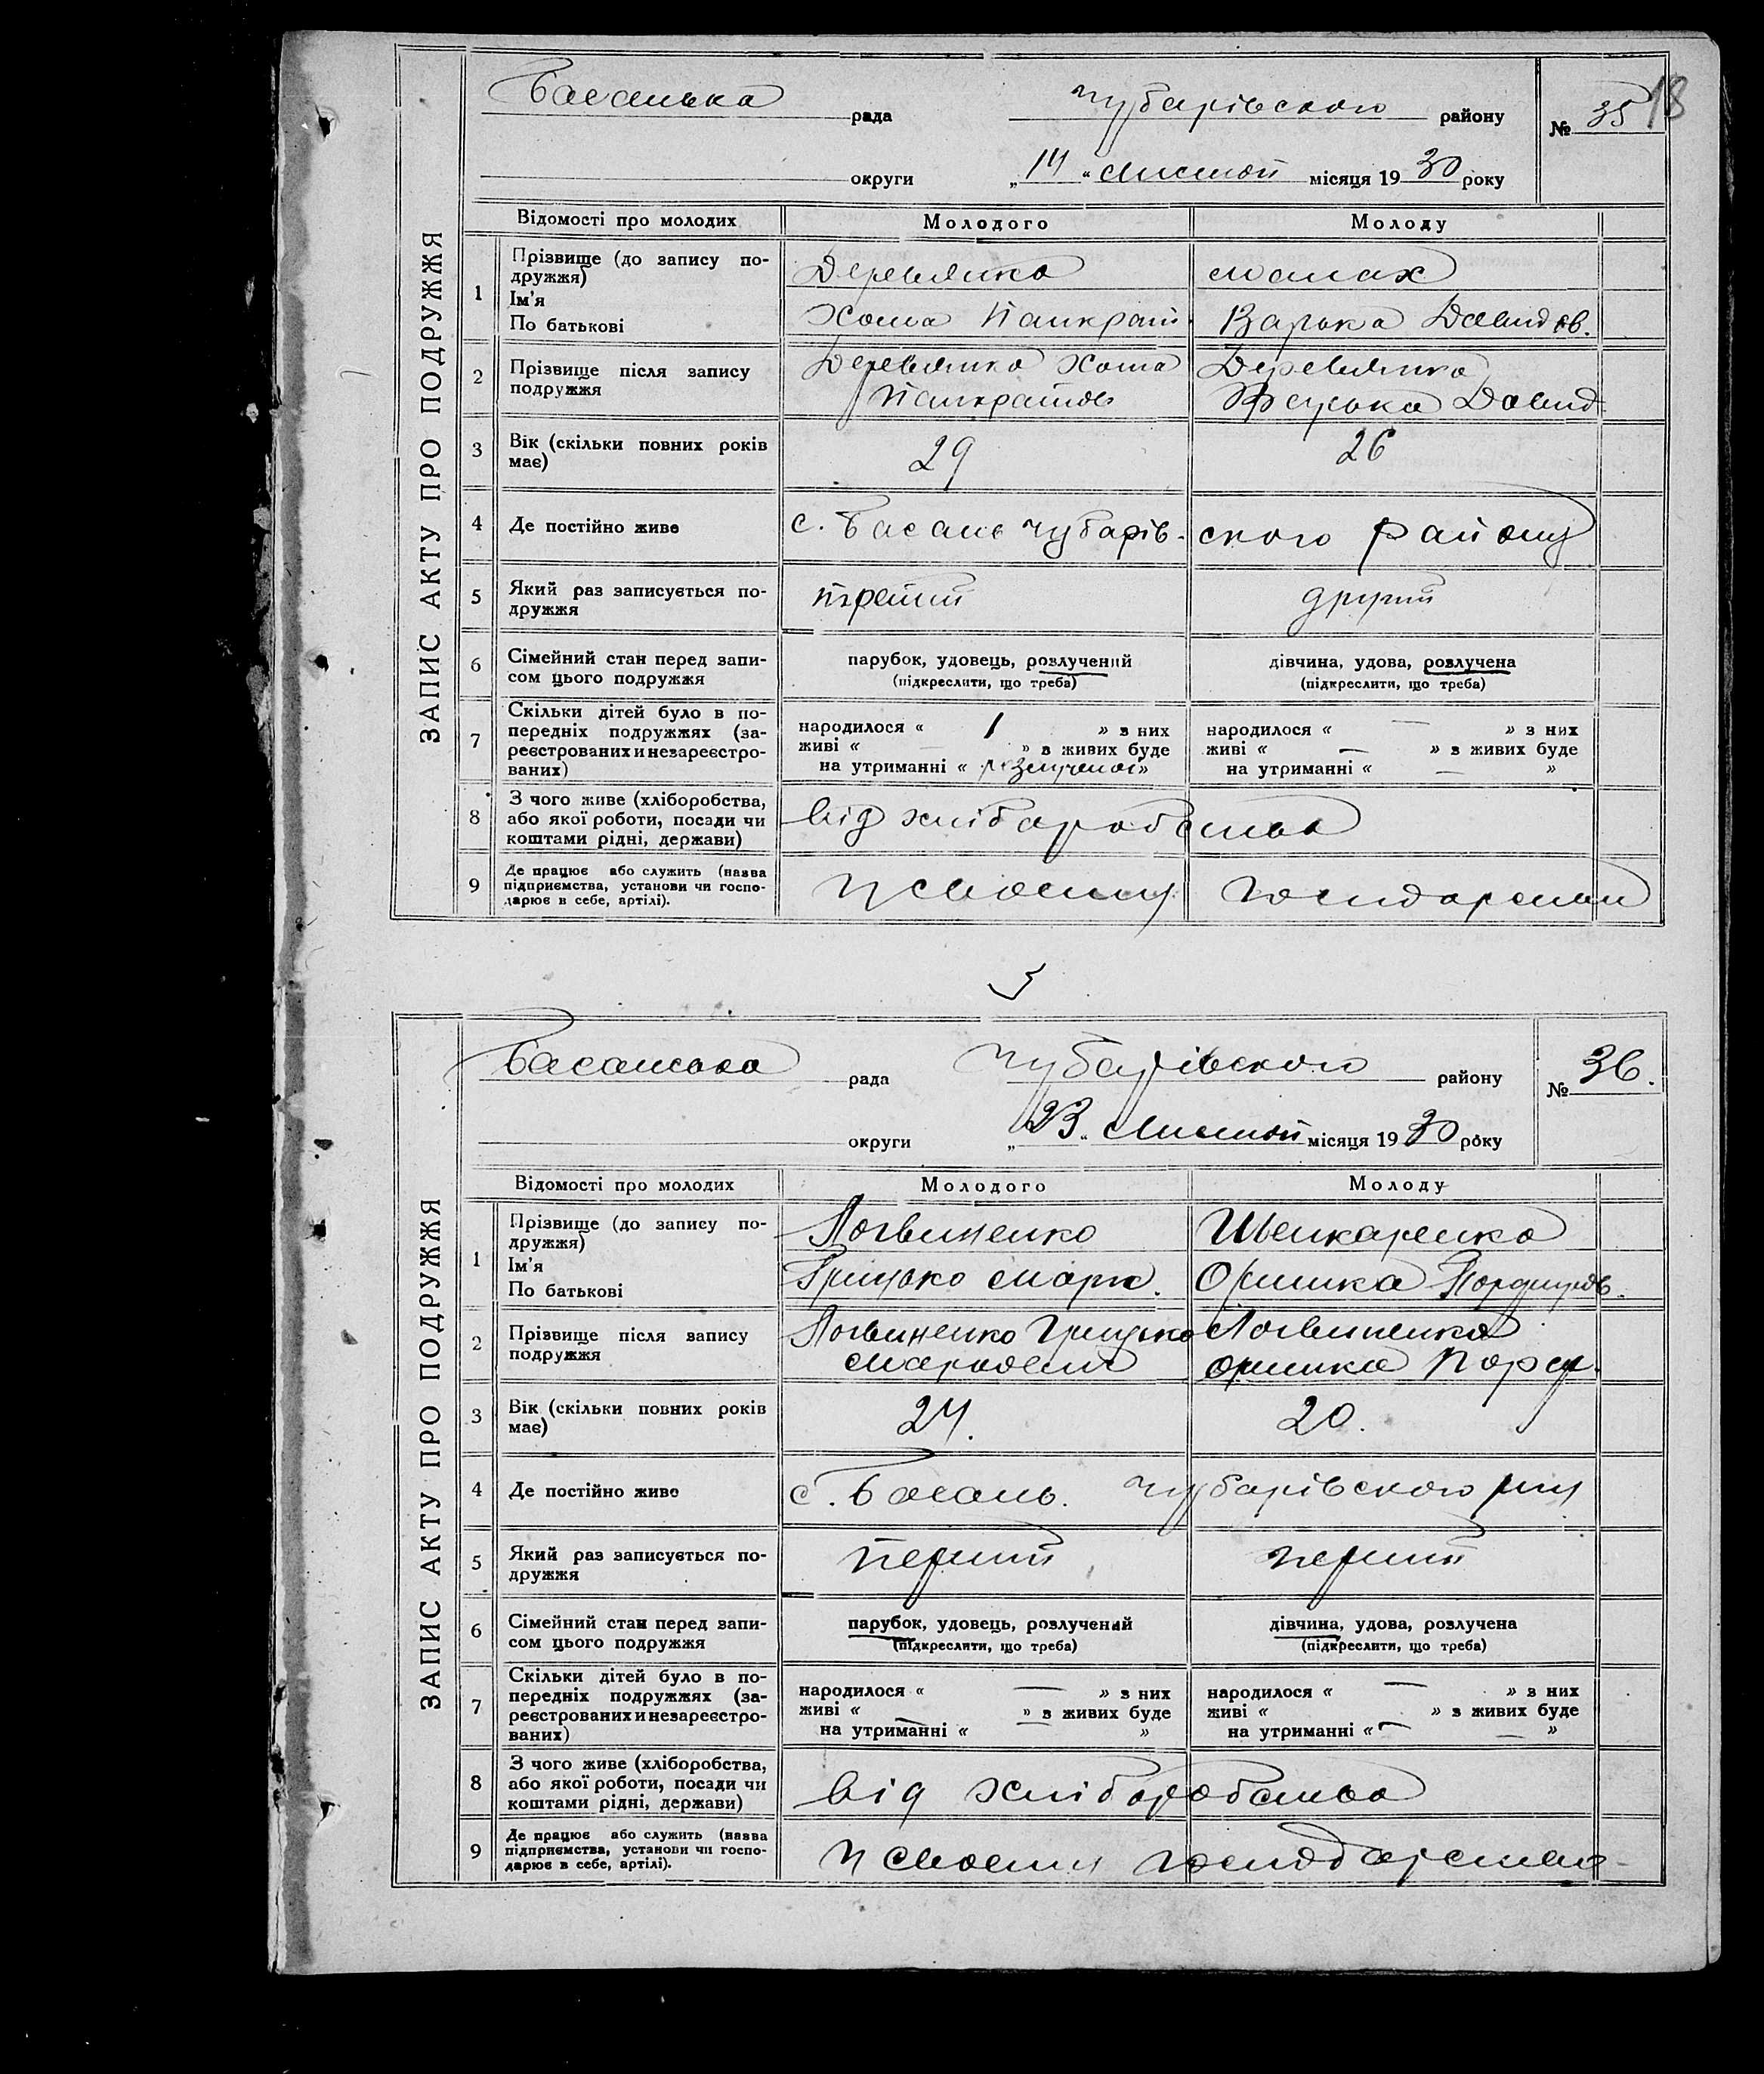 18
ЗАПИС АКТУ ПРО ПОДРУЖЖЯ
Басанська рада Чубарівського району № 35
округи „14“ Листоп місяця 1930 року
Відомості про молодих Молодого Молоду
1 Прізвище (до запису по-
дружжя)
Ім'я
По батькові
Деревянко Малах
Хома Панкрат. Варька Давидов.
2 Прізвище після запису
подружжя
Деревянко Хома Деревянко
Панкратов Давид.
3 Вік (скільки повних років
має)
29 26
4 Де постійно живе с. Басань Чубарів- ского району
5 Який раз записується по-
дружжя
третій другий
6 Сімейний стан перед запи-
сом цього подружжя
парубок, удовець, розлучений дівчина, удова, розлучена
(підкреслити, що треба) (підкреслити, що треба)
7 Скільки дітей було в по-
передніх подружжях (за-
реєстрованих и незареєстро-
ваних)
народилося « 1 » з них народилося « — » з них
живі « — » з живих буде живі « — » з живих буде
на утриманні « » на утриманні « — »
8 З чого живе (хліборобства,
або якої роботи, посади чи
коштами рідні, держави)
від хліборобства
9 Де працює або служить (назва
підприємства, установи чи госпо-
дарює в себе, артілі).
у своему господарстві
ЗАПИС АКТУ ПРО ПОДРУЖЖЯ
Басанська рада Чубарівського району № 36.
округи „23“ Листоп місяця 1930 року
Відомості про молодих Молодого Молоду
1 Прізвище (до запису по-
дружжя)
Ім'я
По батькові
Логвиненко Шенкаренко
Грицько Марк. Оришка
2 Прізвище після запису
подружжя
Логвиненко Грицько Логвиненко
Маркович Оришка
3 Вік (скільки повних років
має)
24. 20.
4 Де постійно живе с. Басань. Чубарівського р-ну
5 Який раз записується по-
дружжя
перший перший
6 Сімейний стан перед запи-
сом цього подружжя
парубок, удовець, розлучений дівчина, удова, розлучена
(підкреслити, що треба) (підкреслити, що треба)
7 Скільки дітей було в по-
передніх подружжях (за-
реєстрованих и незареєстро-
ваних)
народилося « — » з них народилося « — » з них
живі « — » з живих буде живі « » з живих буде
на утриманні « — » на утриманні « — »
8 З чого живе (хліборобства,
або якої роботи, посади чи
коштами рідні, держави)
від хліборобства
9 Де працює або служить (назва
підприємства, установи чи госпо-
дарює в себе, артілі).
у своему господарстві